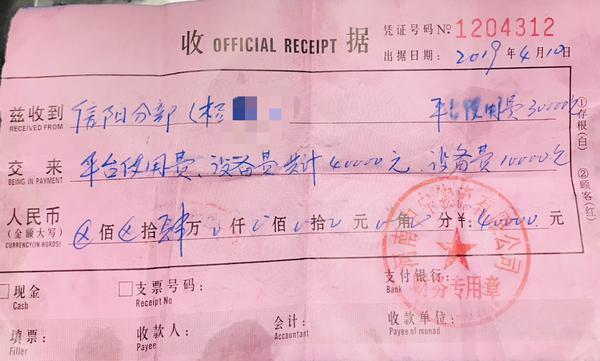 收 OFFICIAL RECEIPT 据
凭证号码 №1204312
出据日期：2019年4月10日
兹收到 信阳分部 平台使用费30000元
RECEIVED FROM
交来 平台使用费、设备费共计40000元，设备费10000元
BEING IN PAYMENT
人民币 佰 拾肆万 仟 佰 拾 元 角 分 ¥：40000元
(金额大写)
CURRENCY(IN WORDS)
①存根(白)
②顾客(红)
河南 有限公司
财务专用章
现金 支票号码： 支付银行：
Cash Receipt No Bank
填票： 收款人： 会计： 收款单位：
Filler Payee Accountant Payee of monad